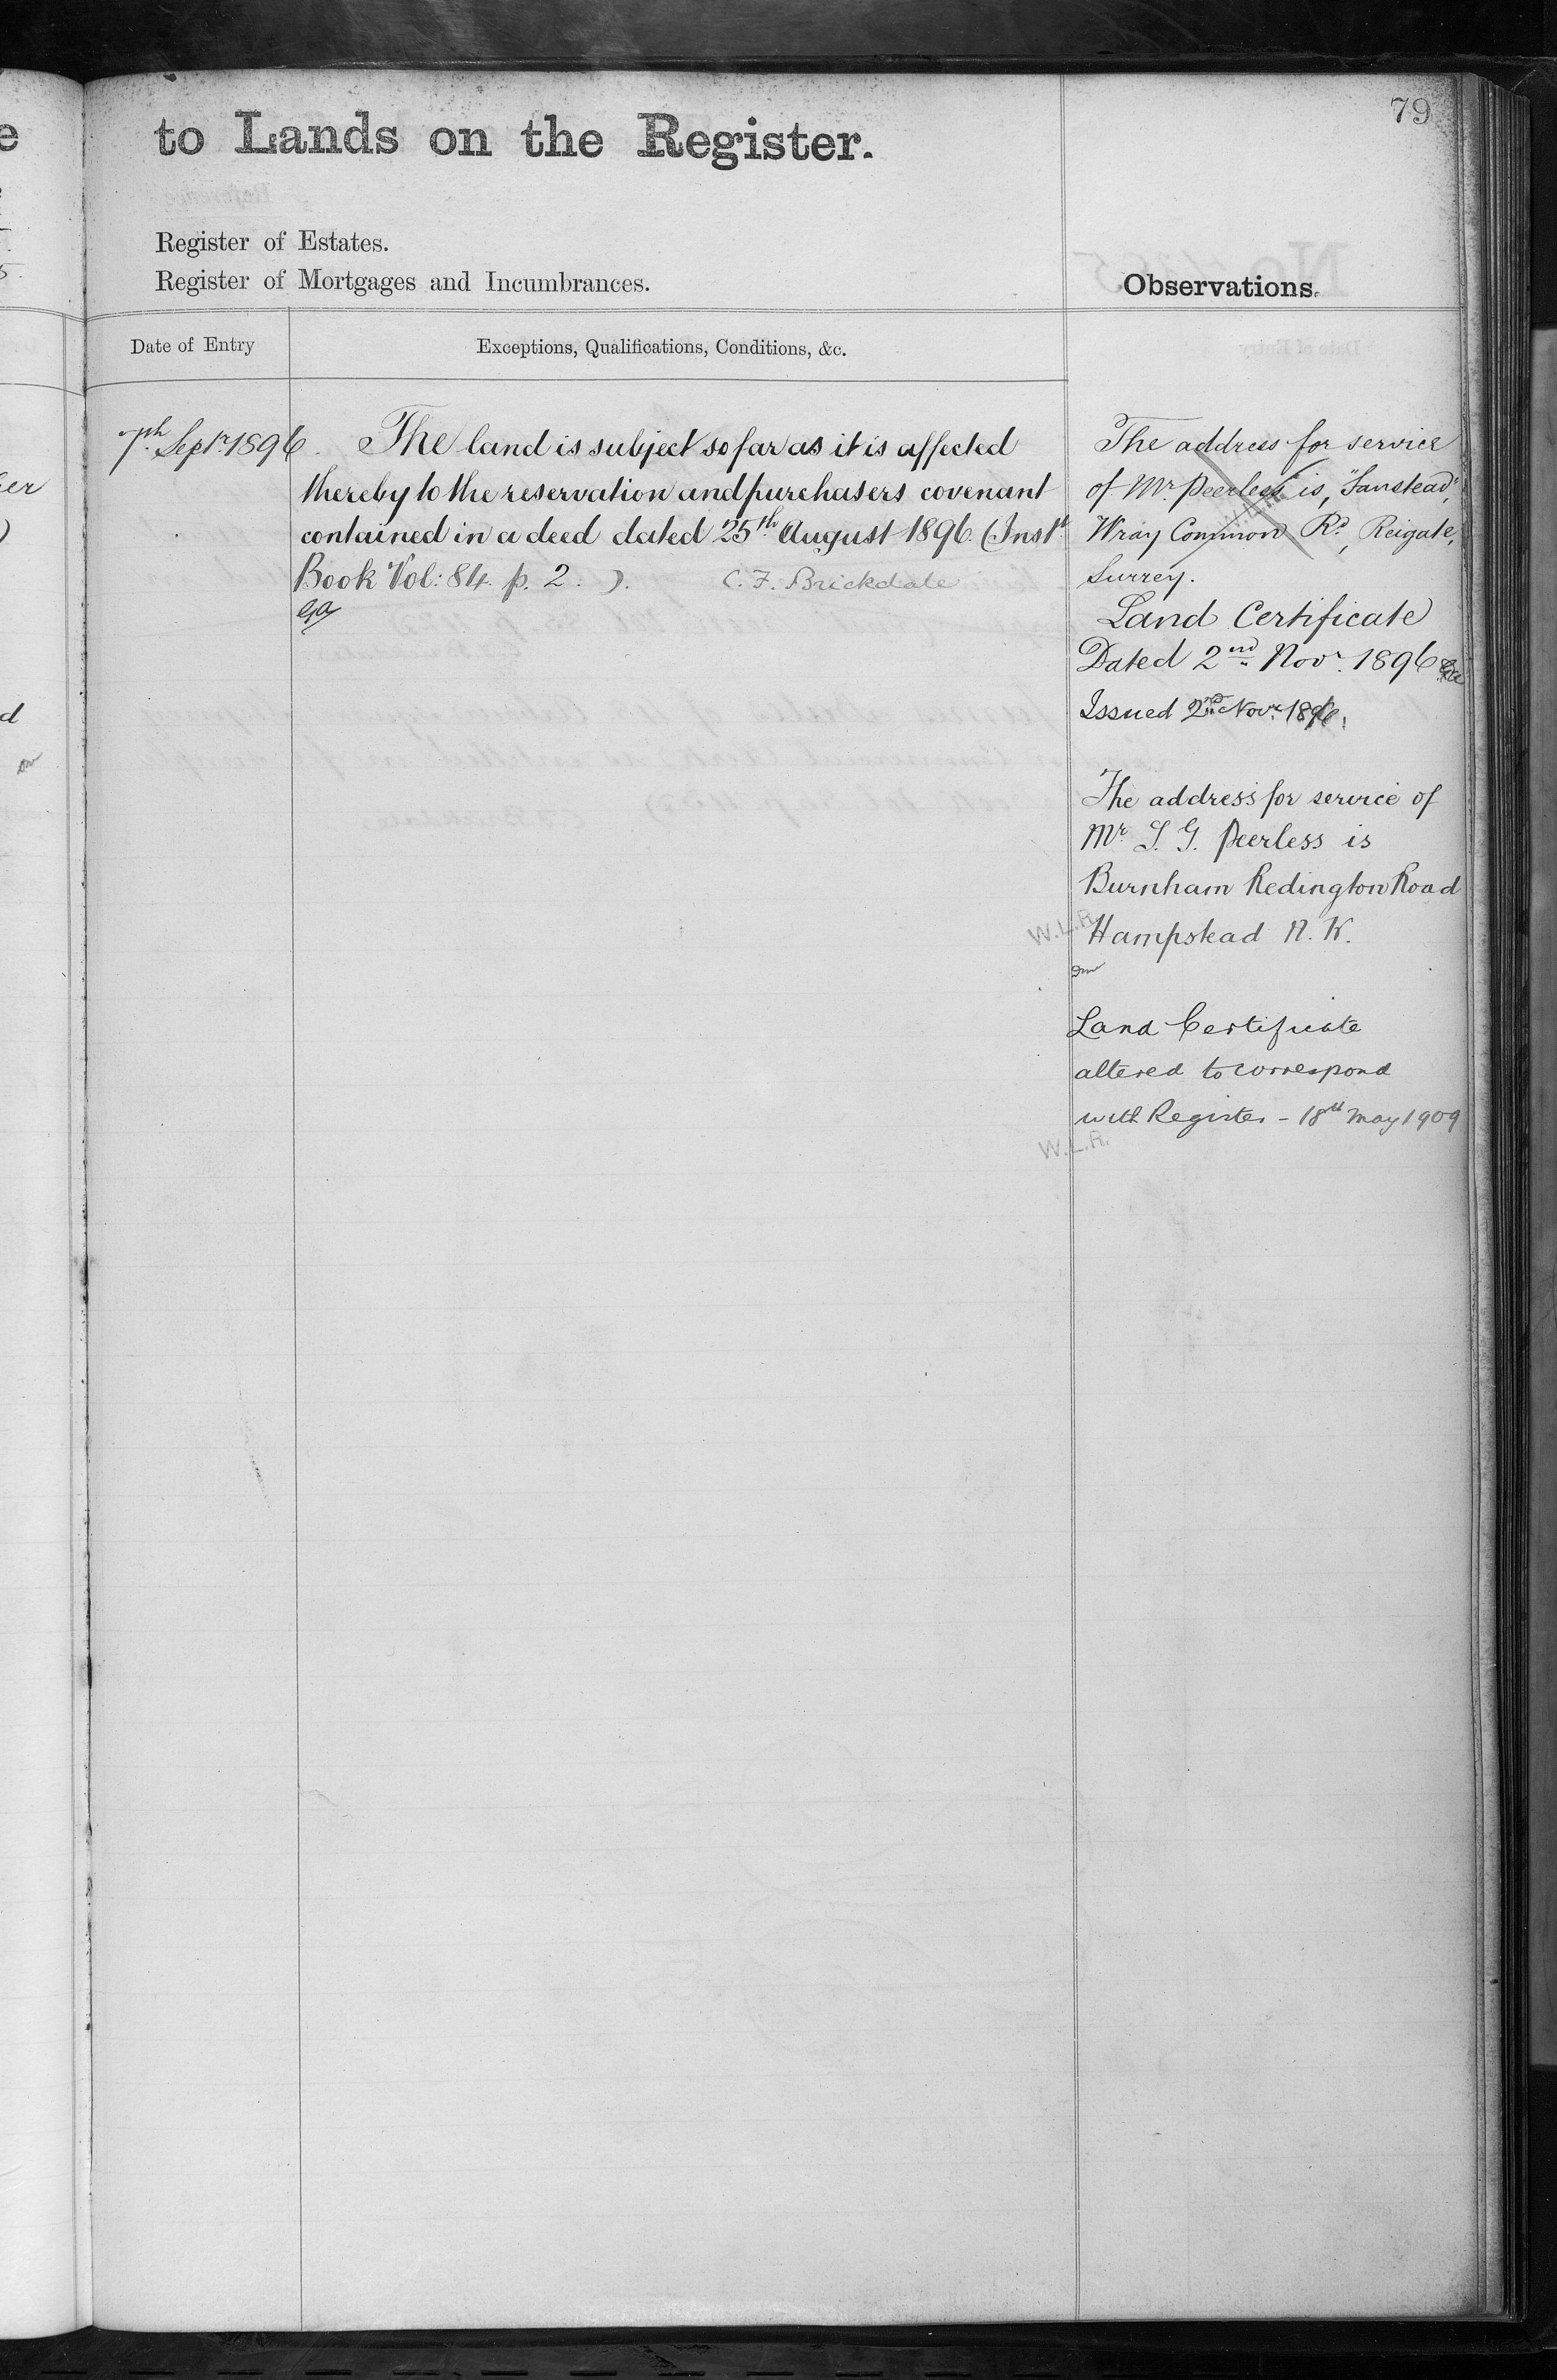 79
to Lands on the Register.
Register of Estates.
Register of Mortgages and Incumbrances.
Observations.
Date of Entry
Exceptions, Qualifications, Conditions, &c.
7th Septr 1896.
The land is subject so far as it is affected
thereby to the reservation and purchasers covenant
contained in a deed dated 25th August 1896. (Inst
Book Vol: 84. p. 2. ). C. F. Brickdale
The address for service
of Mr. Peerless is,
Wray Common Rd, Reigate,
Surrey.
Land Certificate
Dated 2nd Novr. 1896
Issued 2nd Novr. 1896.
The address for service of
Mr S. G. Peerless is
Burnham Redington Road
W.L.R.
Hampstead N. W.
Land Certificate
altered to correspond
with Register - 18th May 1909
W.L.R.